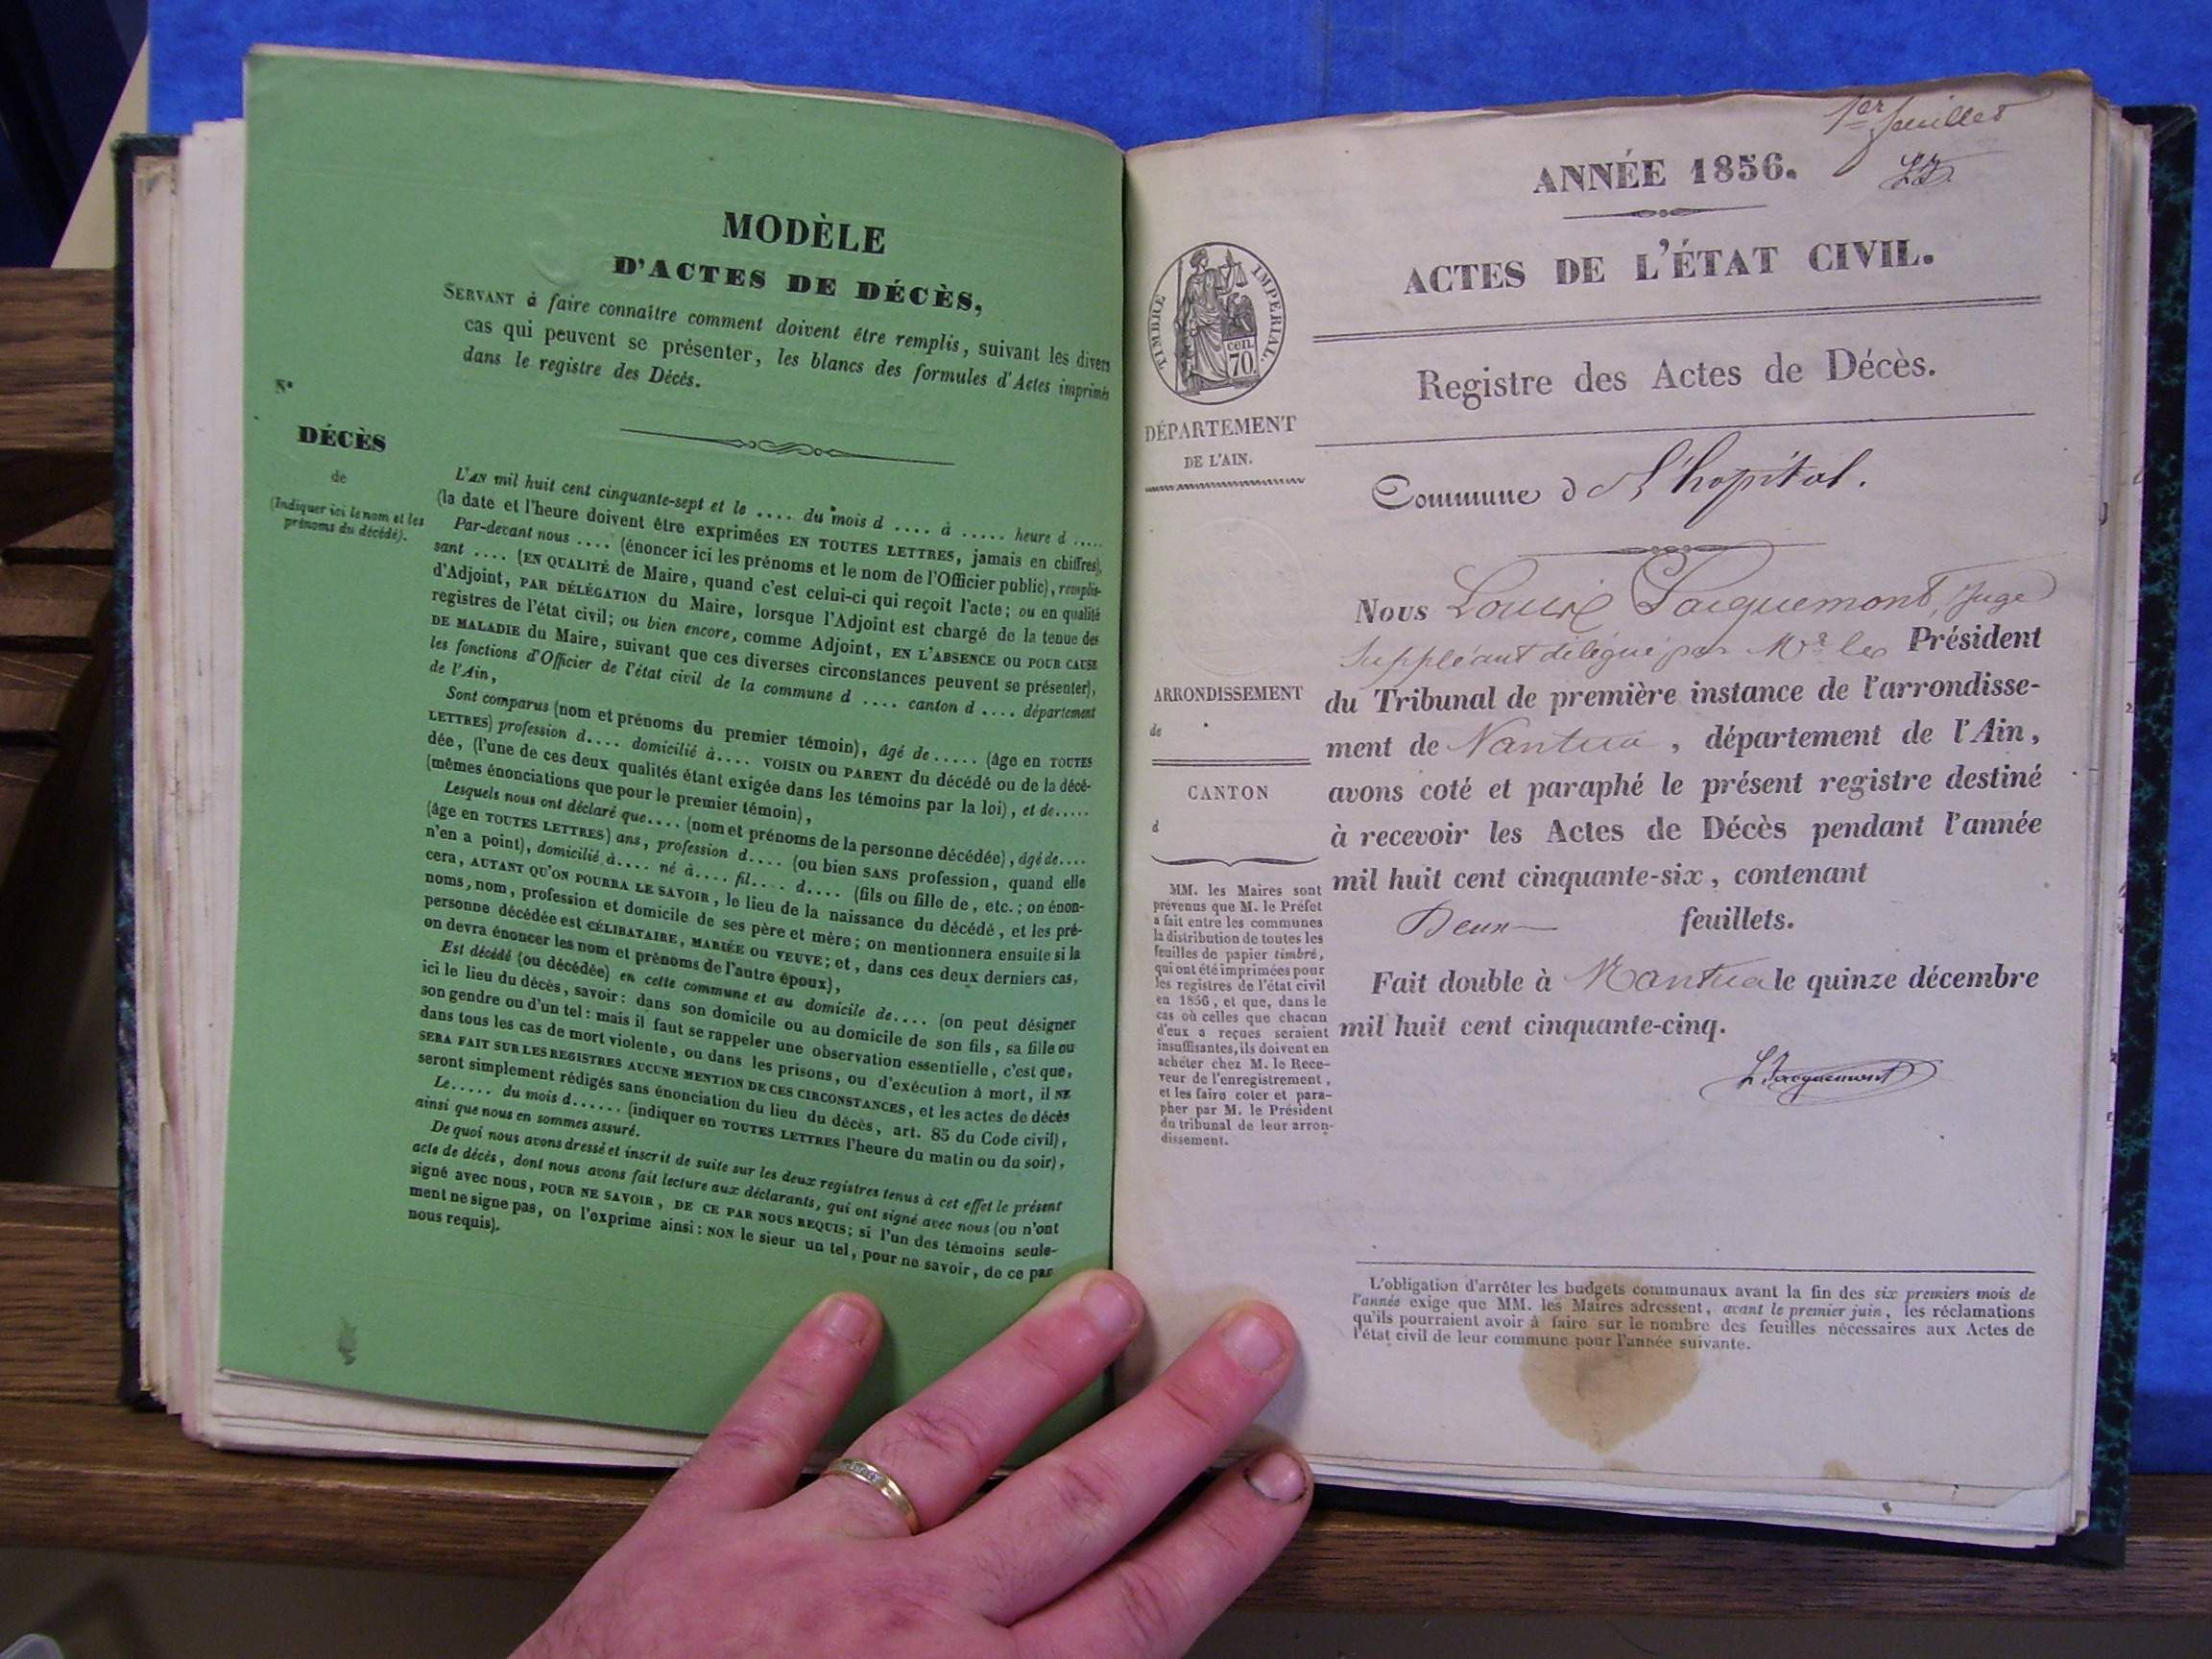 MODÈLE
D'ACTES DE DÉCÈS,
SERVANT à faire connaître comment doivent être remplis, suivant les divers
cas qui peuvent se présenter, les blancs des formules d'Actes imprimés
dans le registre des Décès.
N°
DÉCÈS
de
(Indiquer ici le nom et les
prénoms du décédé).
L'AN mil huit cent cinquante-sept et le .... du mois d .... à ..... heure d .....
(la date et l'heure doivent être exprimées EN TOUTES LETTRES, jamais en chiffres),
Par-devant nous .... (énoncer ici les prénoms et le nom de l'Officier public), remplis-
sant .... (EN QUALITÉ de Maire, quand c'est celui-ci qui reçoit l'acte; ou en qualité
d'Adjoint, PAR DÉLÉGATION du Maire, lorsque l'Adjoint est chargé de la tenue des
registres de l'état civil; ou bien encore, comme Adjoint, EN L'ABSENCE OU POUR CAUSE
DE MALADIE du Maire, suivant que ces diverses circonstances peuvent se présenter),
les fonctions d'Officier de l'état civil de la commune d .... canton d .... département
de l'Ain,
Sont comparus (nom et prénoms du premier témoin), âgé de ..... (âge en TOUTES
LETTRES) profession d.... domicilié à.... VOISIN OU PARENT du décédé ou de la décé-
dée, (l'une de ces deux qualités étant exigée dans les témoins par la loi), et de.....
(mêmes énonciations que pour le premier témoin),
Lesquels nous ont déclaré que.... (nom et prénoms de la personne décédée), âgé de....
(âge en TOUTES LETTRES) ans, profession d.... (ou bien SANS profession, quand elle
n'en a point), domicilié à.... né à.... fil.... d.... (fils ou fille de, etc.; on énon-
cera, AUTANT QU'ON POURRA LE SAVOIR, le lieu de la naissance du décédé, et les pré-
noms, nom, profession et domicile de ses père et mère; on mentionnera ensuite si la
personne décédée est CÉLIBATAIRE, MARIÉE OU VEUVE; et, dans ces deux derniers cas,
on devra énoncer les nom et prénoms de l'autre époux),
Est décédé (ou décédée) en cette commune et au domicile de.... (on peut désigner
ici le lieu du décès, savoir: dans son domicile ou au domicile de son fils, sa fille ou
son gendre ou d'un tel: mais il faut se rappeler une observation essentielle, c'est que,
dans tous les cas de mort violente, ou dans les prisons, ou d'exécution à mort, il NE
SERA FAIT SUR LES REGISTRES AUCUNE MENTION DE CES CIRCONSTANCES, et les actes de décès
seront simplement rédigés sans énonciation du lieu du décès, art. 85 du Code civil),
Le..... du mois d...... (indiquer en TOUTES LETTRES l'heure du matin ou du soir),
ainsi que nous en sommes assuré.
De quoi nous avons dressé et inscrit de suite sur les deux registres tenus à cet effet le présent
acte de décès, dont nous avons fait lecture aux déclarants, qui ont signé avec nous (ou n'ont
signé avec nous, POUR NE SAVOIR, DE CE PAR NOUS REQUIS; si l'un des témoins seule-
ment ne signe pas, on l'exprime ainsi: NON le sieur un tel, pour ne savoir, de ce par
nous requis).
1er feuillet
ANNÉE 1856.
ACTES DE L'ÉTAT CIVIL.
TIMBRE IMPÉRIAL.
cen.
70.
Registre des Actes de Décès.
DÉPARTEMENT
DE L'AIN.
Commune d L'hopital.
Nous Louis Jacquemont, Juge
Suppléant délégué par Mr. le Président
du Tribunal de première instance de l'arrondisse-
ment de Nantua, département de l'Ain,
avons coté et paraphé le présent registre destiné
à recevoir les Actes de Décès pendant l'année
mil huit cent cinquante-six, contenant
Deux feuillets.
Fait double à Nantua le quinze décembre
mil huit cent cinquante-cinq.
L Jacquemont
ARRONDISSEMENT
de
CANTON
d
MM. les Maires sont
prévenus que M. le Préfet
a fait entre les communes
la distribution de toutes les
feuilles de papier timbré,
qui ont été imprimées pour
les registres de l'état civil
en 1856, et que, dans le
cas où celles que chacun
d'eux a reçues seraient
insuffisantes, ils doivent en
acheter chez M. le Rece-
veur de l'enregistrement,
et les faire coter et para-
pher par M. le Président
du tribunal de leur arron-
dissement.
L'obligation d'arrêter les budgets communaux avant la fin des six premiers mois de
l'année exige que MM. les Maires adressent, avant le premier juin, les réclamations
qu'ils pourraient avoir à faire sur le nombre des feuilles nécessaires aux Actes de
l'état civil de leur commune pour l'année suivante.